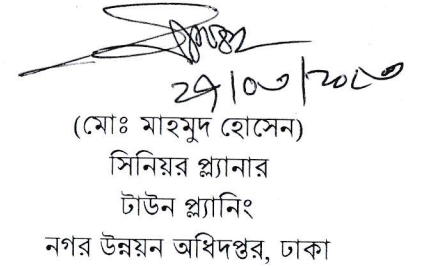 ২৭/০৩/২০১৩
(মোঃ মাহমুদ হোসেন)
সিনিয়র প্ল্যানার
টাউন প্ল্যানিং
নগর উন্নয়ন অধিদপ্তর, ঢাকা